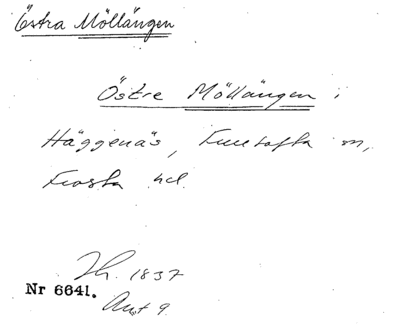 Östra Möllängen
Östre Möllängen i
Häggenäs, Fulltofta sn,
Frosta hd.
Th. 1837
Nr 6641.
Akt 9.